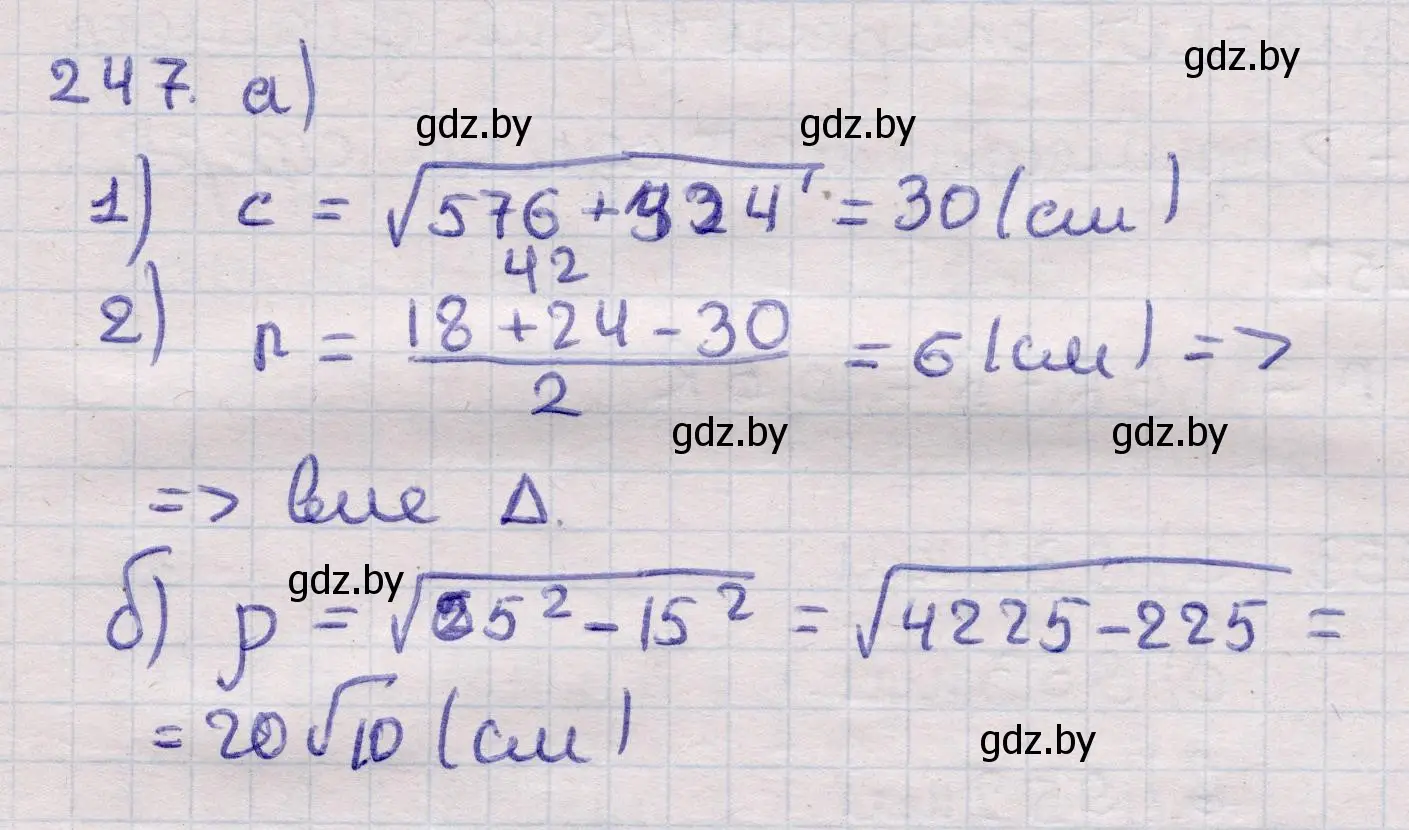 gdz.by
247. а)
gdz.by gdz.by
1) c = √576 + 324 = 30 (см)
42
2) r = (18 + 24 - 30) / 2 = 6 (см) =>
gdz.by gdz.by
=> вне Δ.
б) p = √65² - 15² = √4225 - 225 =
gdz.by
= 20√10 (см)
gdz.by